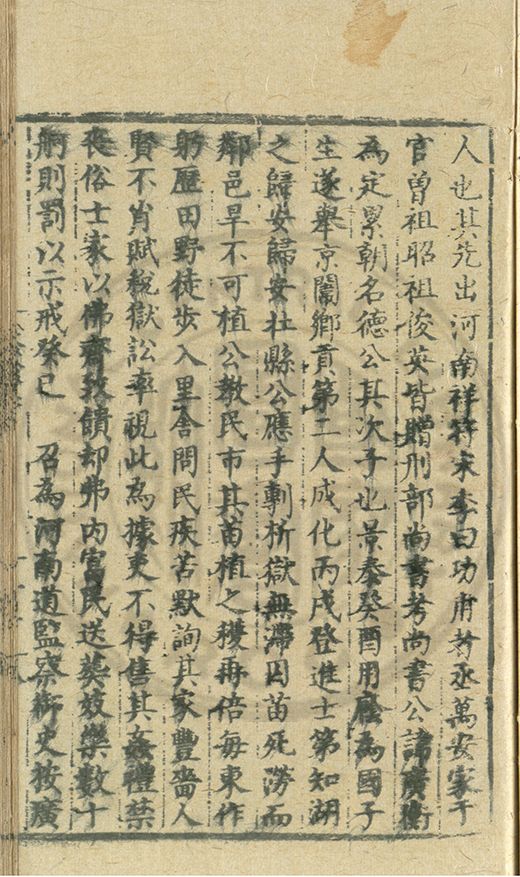 人也其先出河南祥符宋季曰功甫者丞萬安家于
官曾祖昭祖俊英皆贈刑部尚書考尚書公諱廣衡
為定累朝名德公其次子也景泰癸酉用廕為國子
生遂舉京闈鄉貢第二人成化丙戌登進士第知湖
之歸安歸安壯縣公應手剸析獄無滯囚苗死澇而
鄰邑旱不可植公教民市其苗植之穫再倍每東作
躬歷田野徒步入里舍問民疾苦默詢其家豐嗇人
賢不肖賦稅獄訟率視此為據吏不得售其姦禮禁
喪俗士家以佛齋致饋却弗內富民送葬妓樂數十
舸則罰以示戒癸巳 召為河南道監察御史按廣